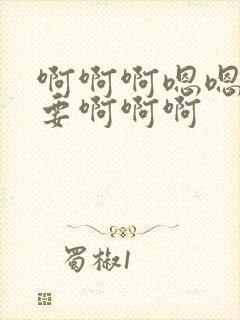 啊啊啊嗯嗯
要啊啊啊
蜀椒1